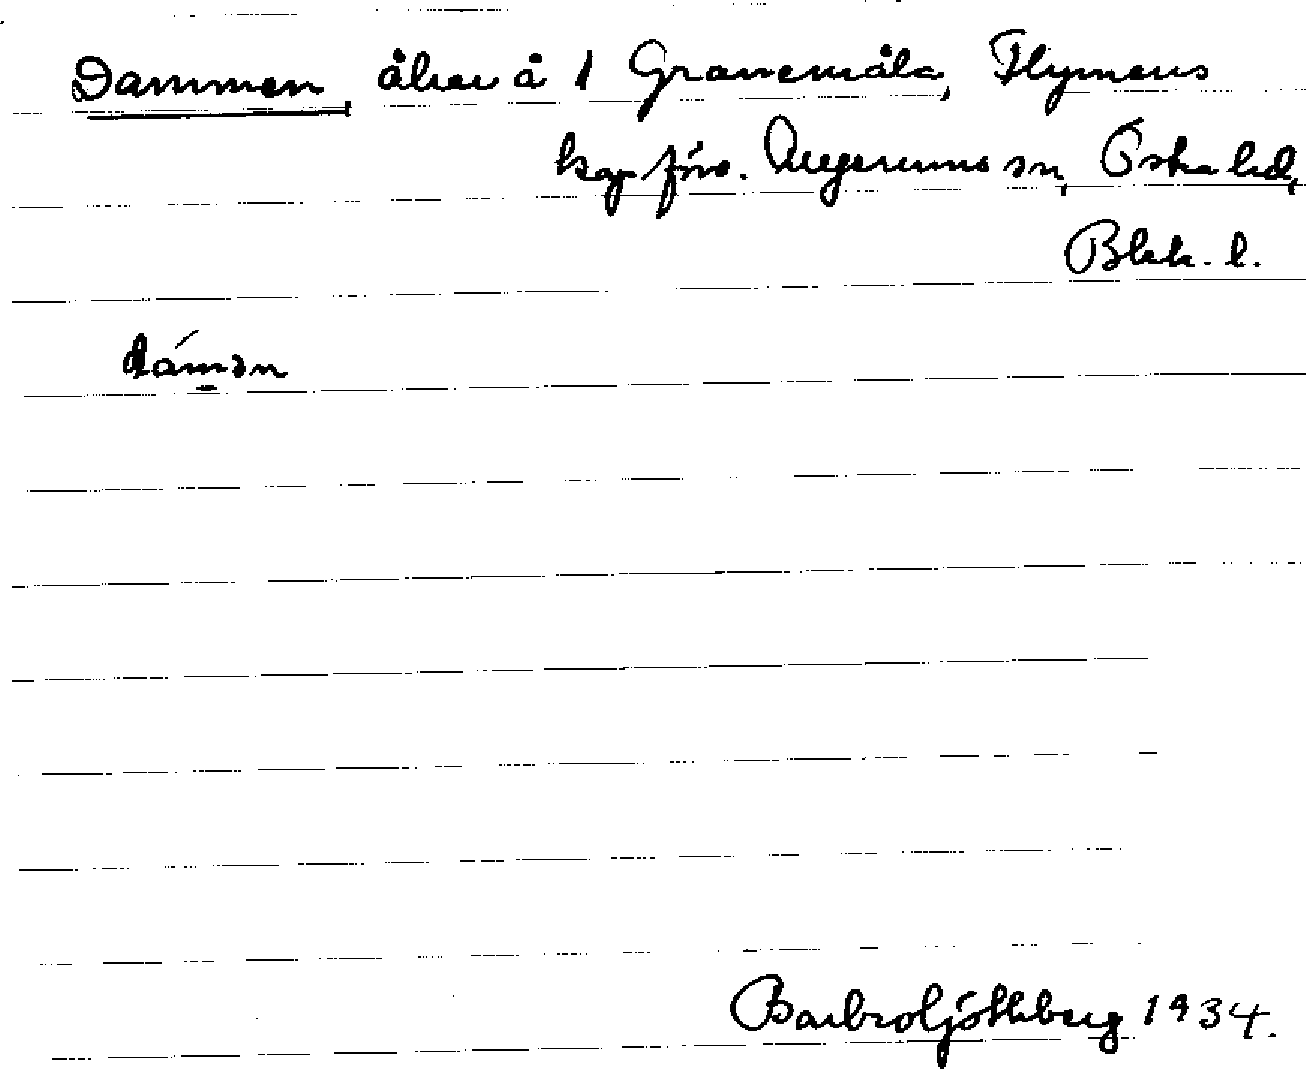 Dammen, åker å 1 Granemåla, Flymens
kap.förs. Augerums sn, Östra hd,
Blek. l.
dámən
Barbro Ljóthberg 1934.